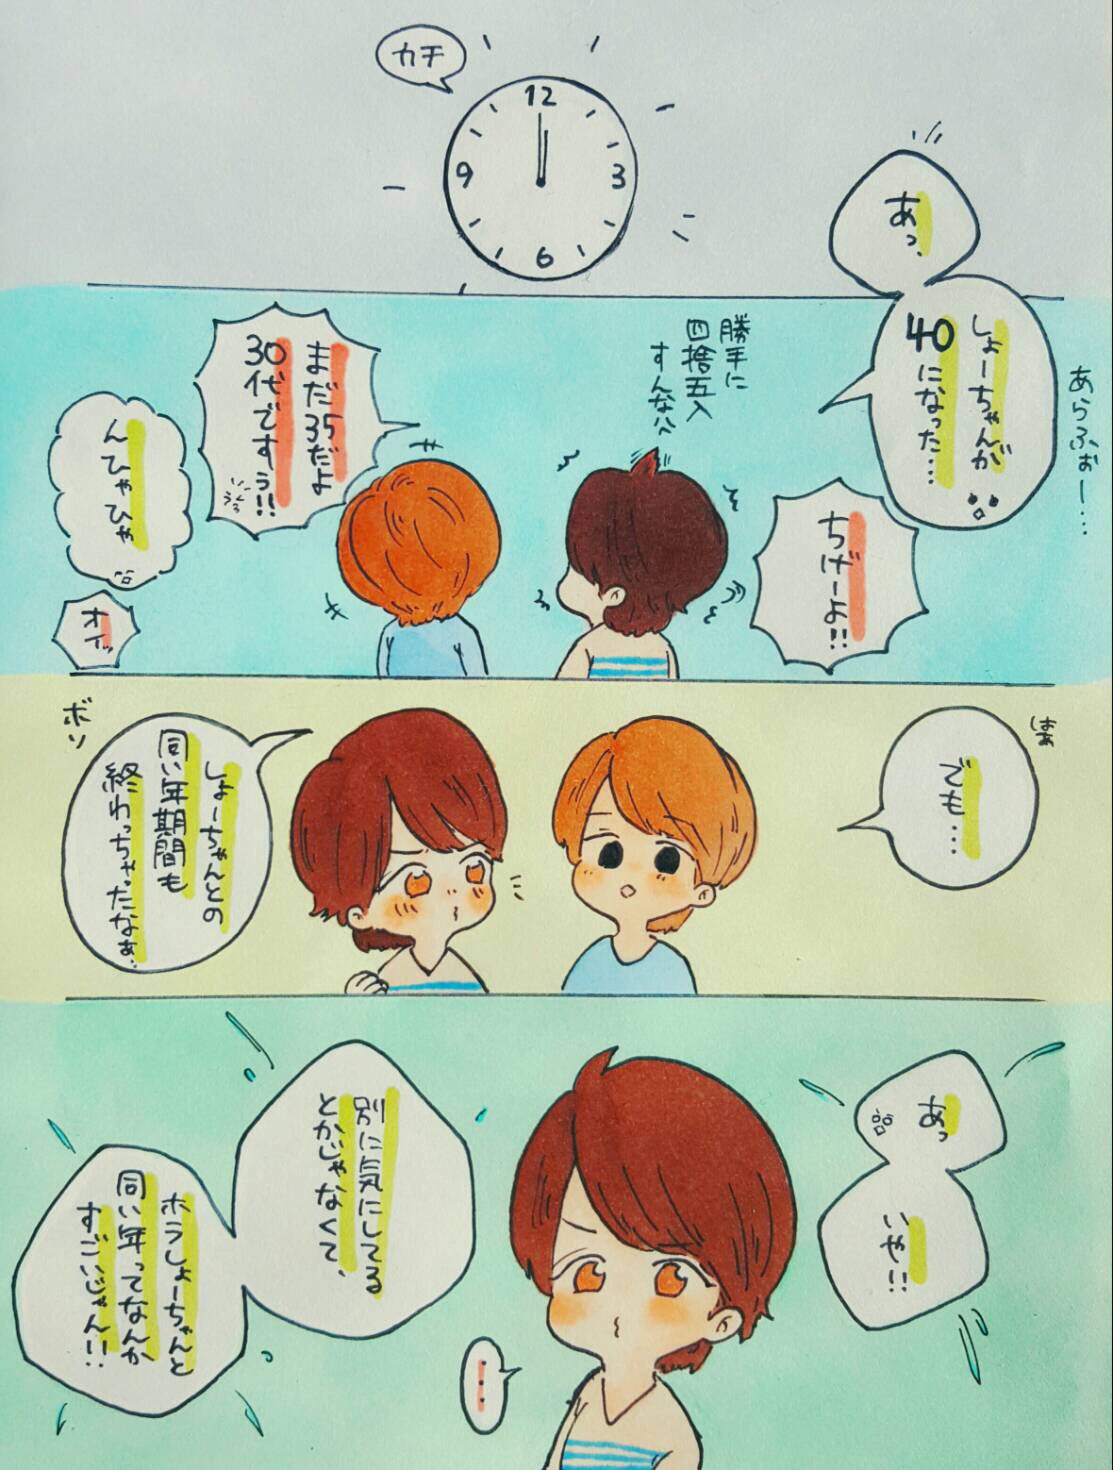 カチ
12
3
6
9
あっ、
しょーちゃんが
40になった…
あらふぉー…
ちげーよ!!
勝手に
四捨五入
すんなハ
まだ35だよ
30代ですぅ!!
んひゃひゃ
オイッ
はぁ
でも…
ボソ
しょーちゃんとの
同い年期間も
終わっちゃったなぁ、
あっ
いや!!
別に気にしてる
とかじゃなくて、
ホラしょーちゃんと
同い年ってなんか
すごいじゃん!!
…